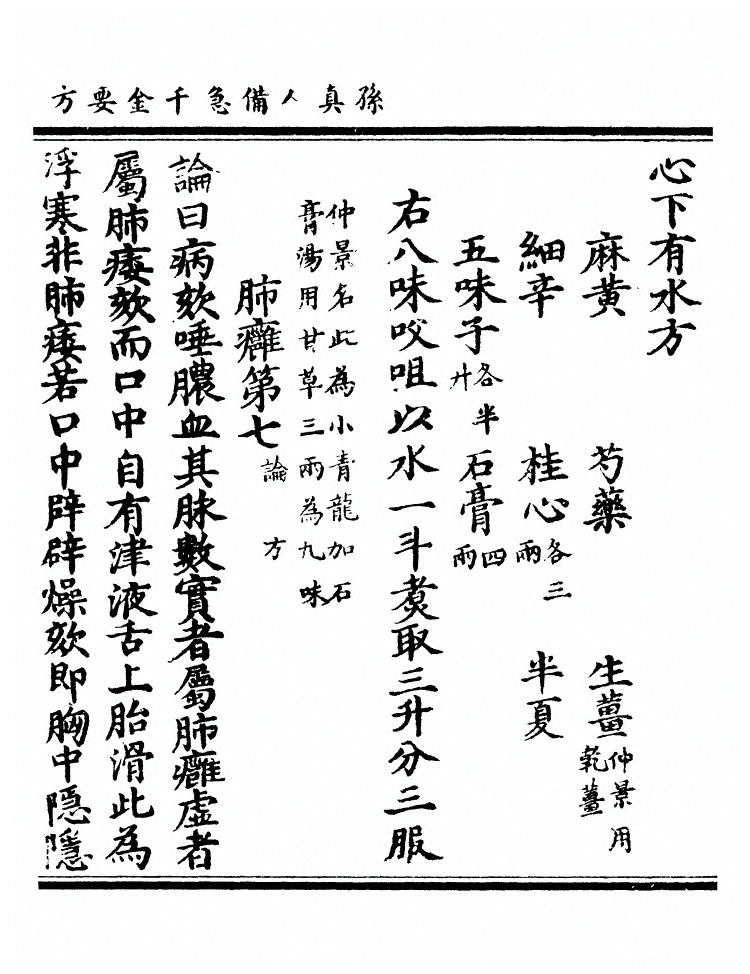 孫真人備急千金要方
心下有水方
麻黃 芍藥 生薑仲景用乾薑
細辛 桂心各三兩 半夏
五味子各半升 石膏四兩
右八味㕮咀以水一斗煑取三升分三服
仲景名此為小青龍加石
膏湯用甘草三兩為九味
肺癰第七 論 方
論曰病欬唾膿血其脉數實者屬肺癰虛者
屬肺痿欬而口中自有津液舌上胎滑此為
浮寒非肺痿若口中辟辟燥欬即胸中隱隱